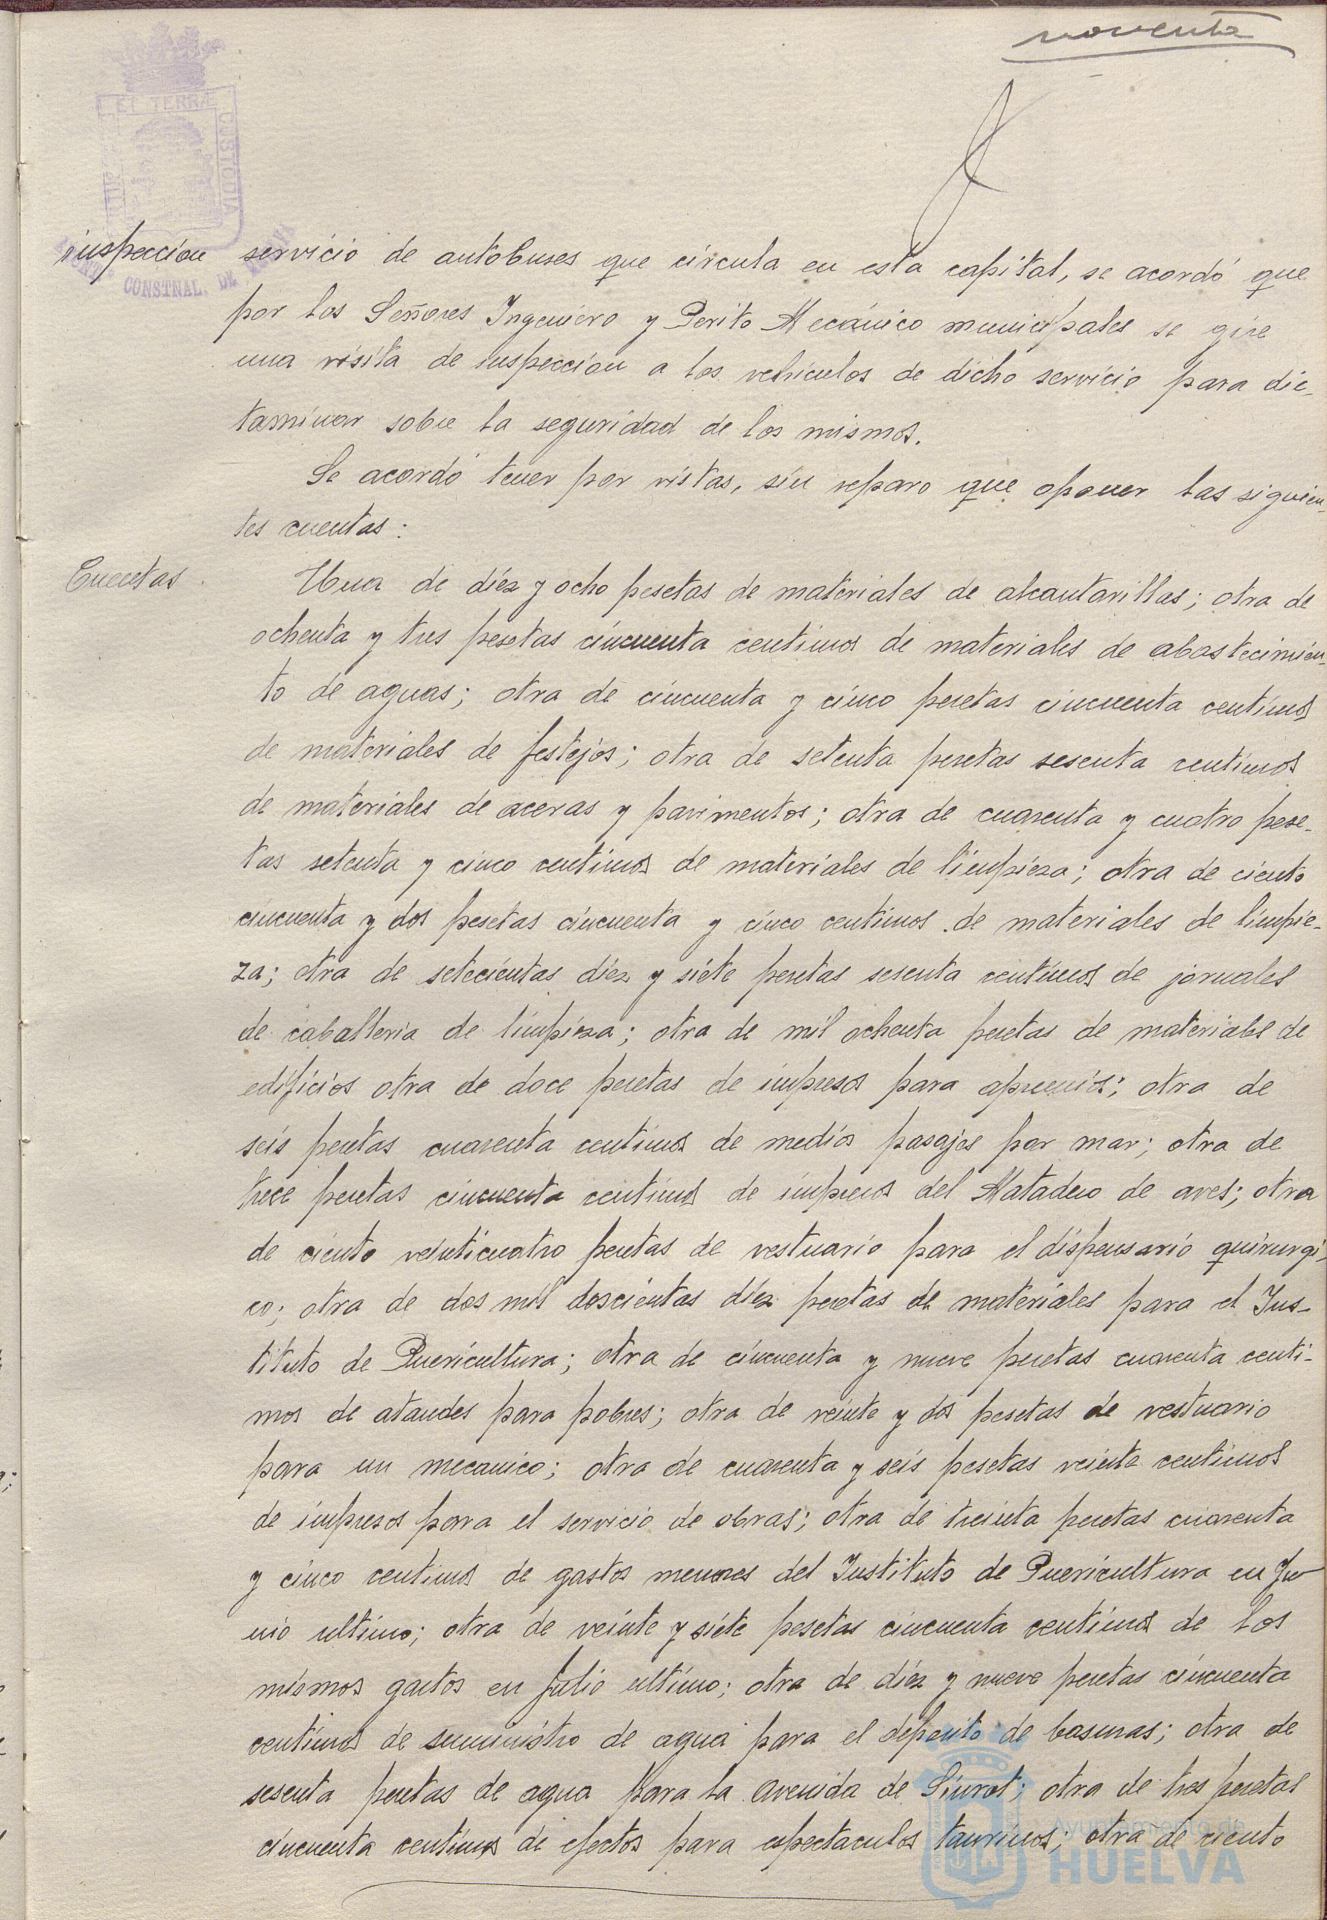 noventa
ET TERRÆ
CUSTODIA
CONSTNAL. DE
inspección
servicio de autobuses que circula en esta capital, se acordó que
por los Señores Ingeniero y Perito Mecánico municipales se gire
una visita de inspección a los vehículos de dicho servicio para dic-
taminar sobre la seguridad de los mismos.
Se acordó tener por vistas, sin reparo que oponer las siguien-
tes cuentas:
Cuentas
Una de diez y ocho pesetas de materiales de alcantarillas; otra de
ochenta y tres pesetas cincuenta centimos de materiales de abastecimien-
to de aguas; otra de cincuenta y cinco pesetas cincuenta centimos
de materiales de festejos; otra de setenta pesetas sesenta centimos
de materiales de aceras y pavimentos; otra de cuarenta y cuatro pese-
tas setenta y cinco centimos de materiales de limpieza; otra de ciento
cincuenta y dos pesetas cincuenta y cinco centimos de materiales de limpie-
za; otra de setecientas diez y siete pesetas sesenta centimos de jornales
de caballeria de limpieza; otra de mil ochenta pesetas de materiales de
edificios otra de doce pesetas de impresos para apremios; otra de
seis pesetas cuarenta centimos de medios pasajes por mar; otra de
trece pesetas cincuenta centimos de impresos del Matadero de aves; otra
de ciento veinticuatro pesetas de vestuario para el dispensario quirurgi-
co; otra de dos mil doscientas diez pesetas de materiales para el Ins-
tituto de Puericultura; otra de cincuenta y nueve pesetas cuarenta centi-
mos de ataudes para pobres; otra de veinte y dos pesetas de vestuario
para un mecanico; otra de cuarenta y seis pesetas veinte centimos
de impresos para el servicio de obras; otra de treinta pesetas cuarenta
y cinco centimos de gastos menores del Instituto de Puericultura en Ju-
nio ultimo; otra de veinte y siete pesetas cincuenta centimos de los
mismos gastos en Julio ultimo; otra de diez y nueve pesetas cincuenta
centimos de suministro de agua para el deposito de basuras; otra de
sesenta pesetas de agua para la Avenida de Siurot; otra de tres pesetas
cincuenta centimos de efectos para espectaculos taurinos; otra de ciento
Ayuntamiento de
HUELVA